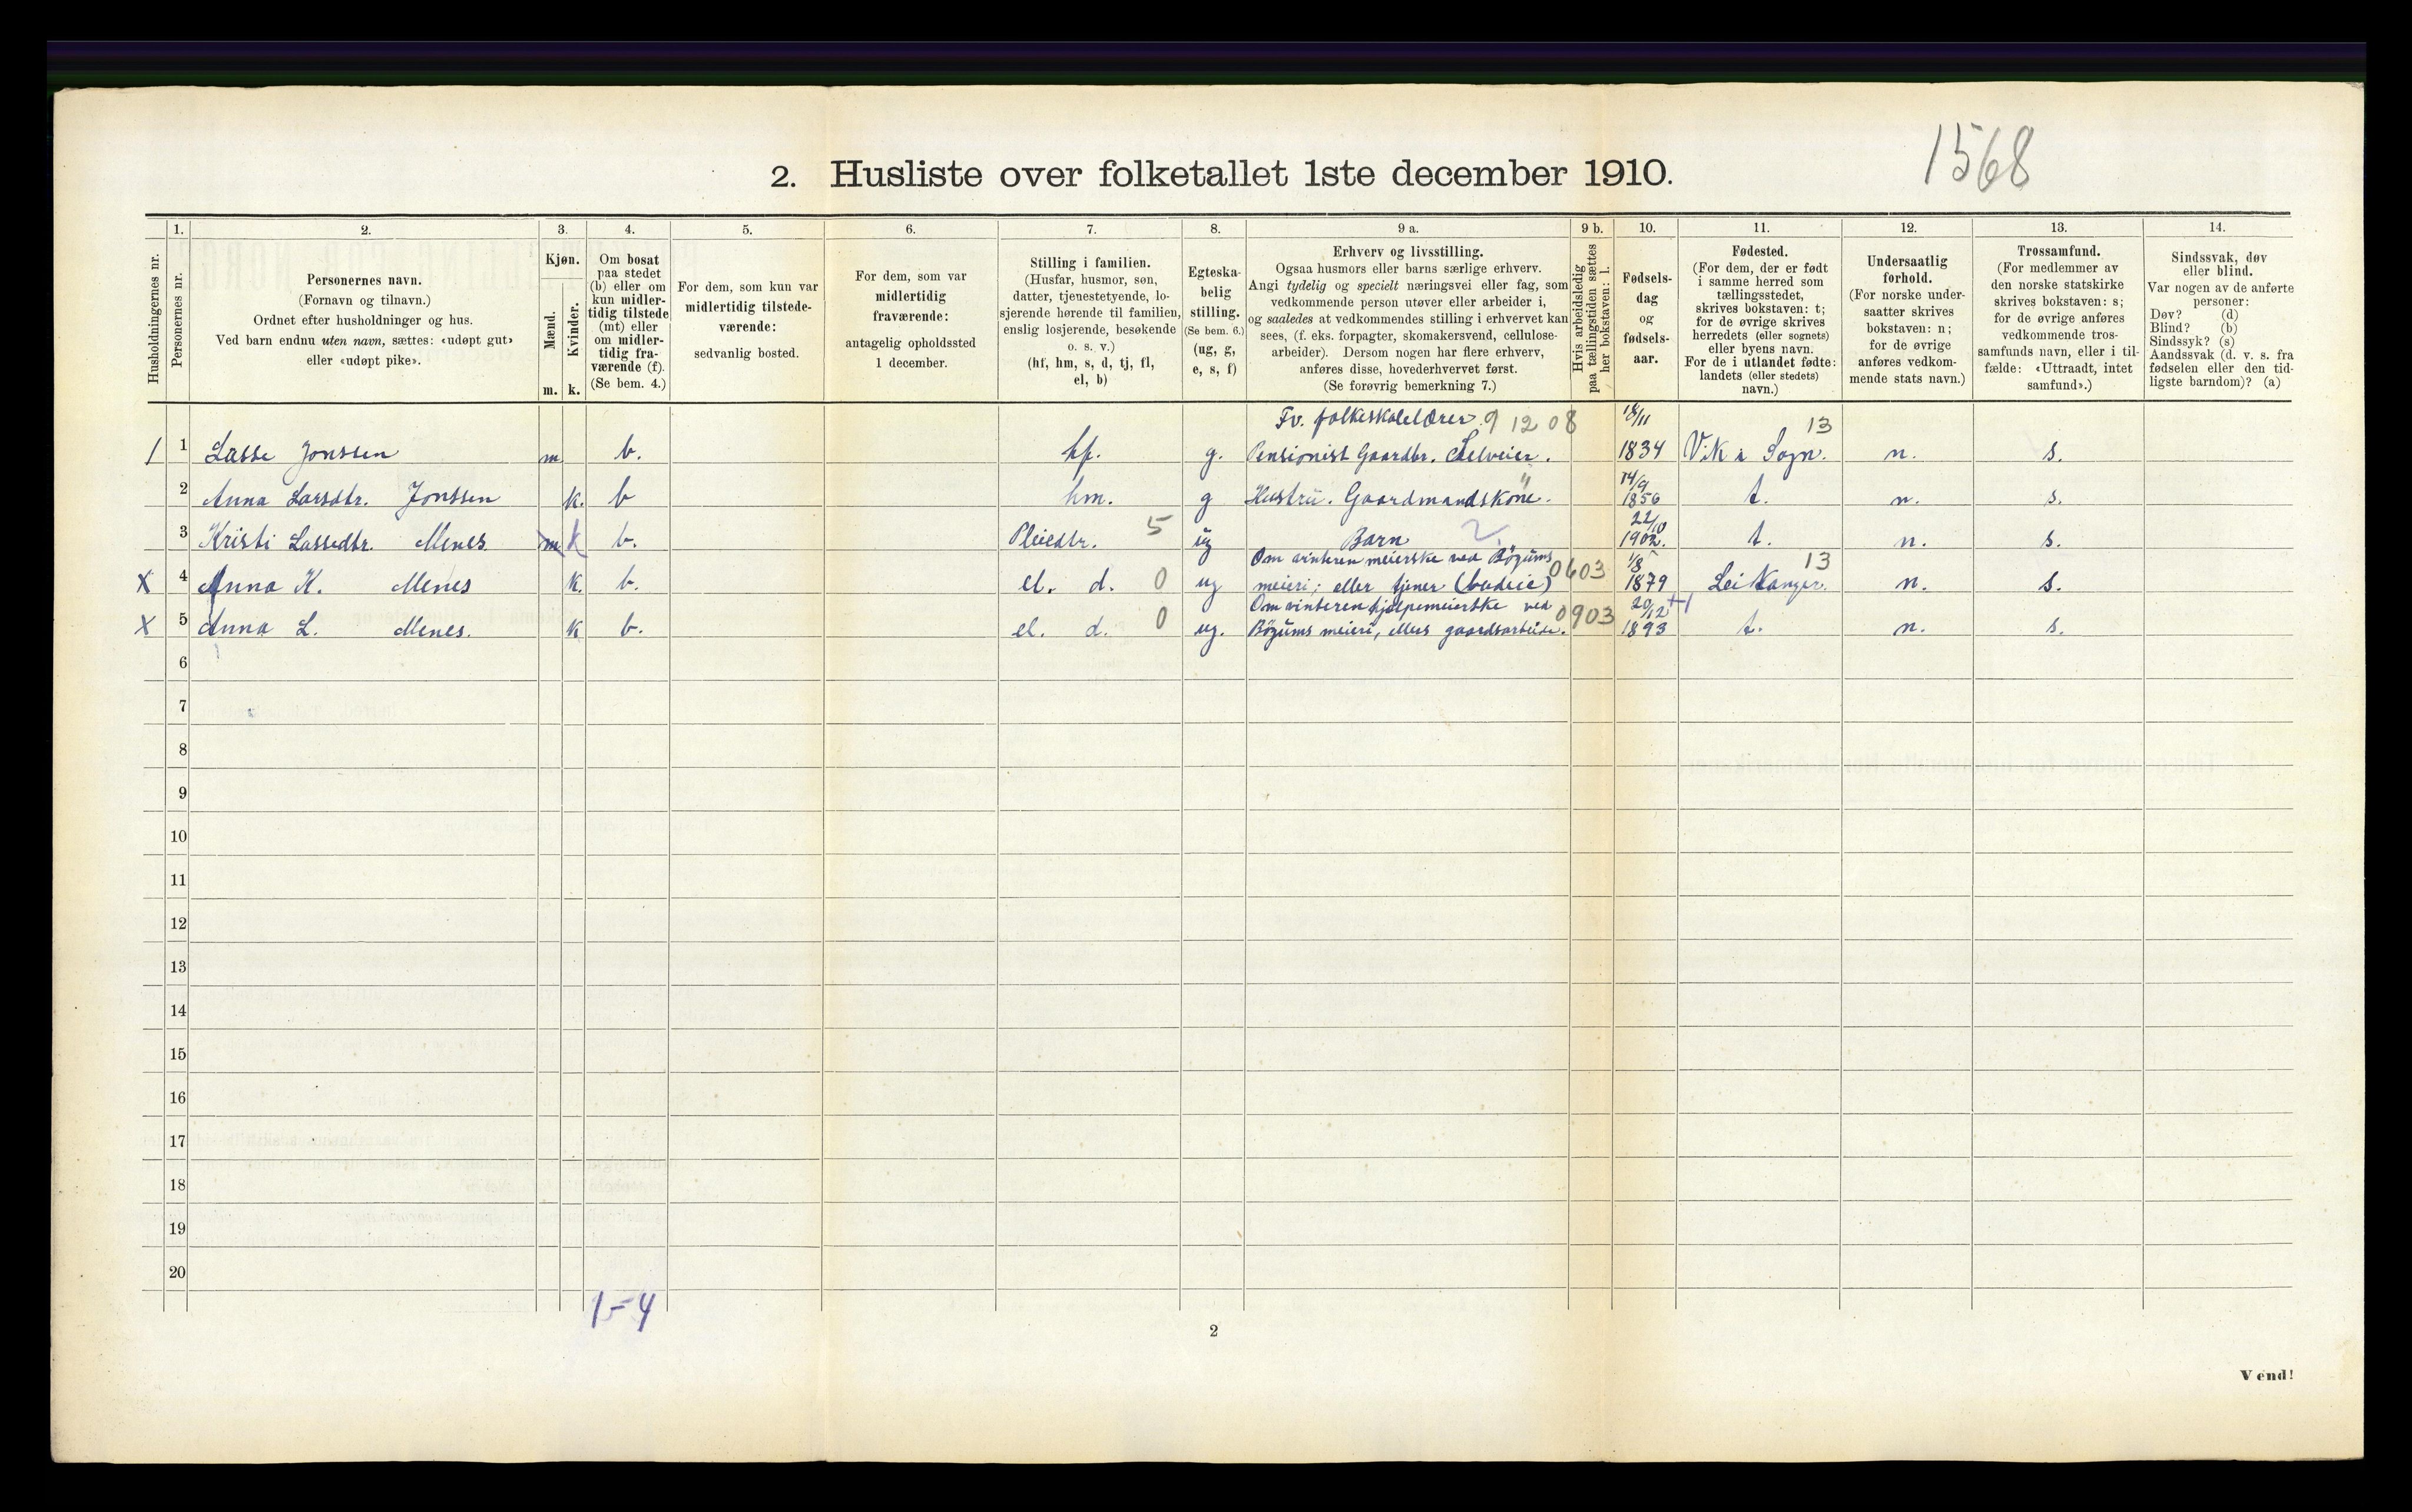 1568
2. Husliste over folketallet 1ste december 1910.
Husholdningernes nr.
1.
Personernes nr.
2.
Personernes navn.
(Fornavn og tilnavn.)
Ordnet efter husholdninger og hus.
Ved barn endnu uten navn, sættes: «udøpt gut»
eller «udøpt pike».
3.
Kjøn.
Mænd.
Kvinder.
m. k.
4.
Om bosat
paa stedet
(b) eller om
kun midler-
tidig tilstede
(mt) eller
om midler-
tidig fra-
værende (f).
(Se bem. 4.)
5.
For dem, som kun var
midlertidig tilstede-
værende:
sedvanlig bosted.
6.
For dem, som var
midlertidig
fraværende:
antagelig opholdssted
1 december.
7.
Stilling i familien.
(Husfar, husmor, søn,
datter, tjenestetyende, lo-
sjerende hørende til familien,
enslig losjerende, besøkende
o. s. v.)
(hf, hm, s, d, tj, fl,
el, b)
8.
Egteska-
belig
stilling.
(Se bem. 6.)
(ug, g,
e, s, f)
9 a.
Erhverv og livsstilling.
Ogsaa husmors eller barns særlige erhverv.
Angi tydelig og specielt næringsvei eller fag, som
vedkommende person utøver eller arbeider i,
og saaledes at vedkommendes stilling i erhvervet kan
sees, (f. eks. forpagter, skomakersvend, cellulose-
arbeider). Dersom nogen har flere erhverv,
anføres disse, hovederhvervet først.
(Se forøvrig bemerkning 7.)
9 b.
Hvis arbeidsledig
paa tællingstiden sættes
her bokstaven: l.
10.
Fødsels-
dag
og
fødsels-
aar.
11.
Fødested.
(For dem, der er født
i samme herred som
tællingsstedet,
skrives bokstaven: t;
for de øvrige skrives
herredets (eller sognets)
eller byens navn.
For de i utlandet fødte:
landets (eller stedets)
navn.)
12.
Undersaatlig
forhold.
(For norske under-
saatter skrives
bokstaven: n;
for de øvrige
anføres vedkom-
mende stats navn.)
13.
Trossamfund.
(For medlemmer av
den norske statskirke
skrives bokstaven: s;
for de øvrige anføres
vedkommende tros-
samfunds navn, eller i til-
fælde: «Uttraadt, intet
samfund».)
14.
Sindssvak, døv
eller blind.
Var nogen av de anførte
personer:
Døv? (d)
Blind? (b)
Sindssyk? (s)
Aandssvak (d. v. s. fra
fødselen eller den tid-
ligste barndom)? (a)
Fv. folkeskolelærer 9 12 08 18/11 13
1 1 Lasse Jonssen m b. hf. g. Pensionist Gaardbr. Selveier. 1834 Vik i Sogn. n. s.
" 14/9
2 Anna Larsdtr. Jonssen k. b hm. g Hustru. Gaardmandskone. 1856 t. n. s.
5 2 22/10
3 Kristi Lassedtr. Menes m k b. Pleiedtr. ug Barn 1902. t. n. s.
Om vinteren meierske ved Bøgums 0603 1/8 13
X 4 Anna K. Menes k. b. el. d. 0 ug meieri; eller tjener (budeie) 1879 Leikanger. n. s.
Om vinteren hjelpemeierske ved 0903 20/12 +1
X 5 Anna L. Menes. k b. el. d. 0 ug. Bøgums meieri, ellers gaardsarbeide. 1893 t. n. s.
6
7
8
9
10
11
12
13
14
15
16
17
18
19
20
1-4
2
Vend!